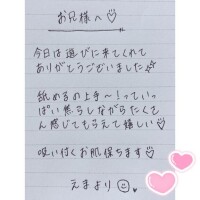 お兄様へ♡
今日は遊びに来てくれて
ありがとうございました☆
舐めるの上手〜！っていっ
ぱい焦らしながらたくさ
ん感じてもらえて嬉しい♡
吸い付くお肌保ちます♡
えまより☺♥